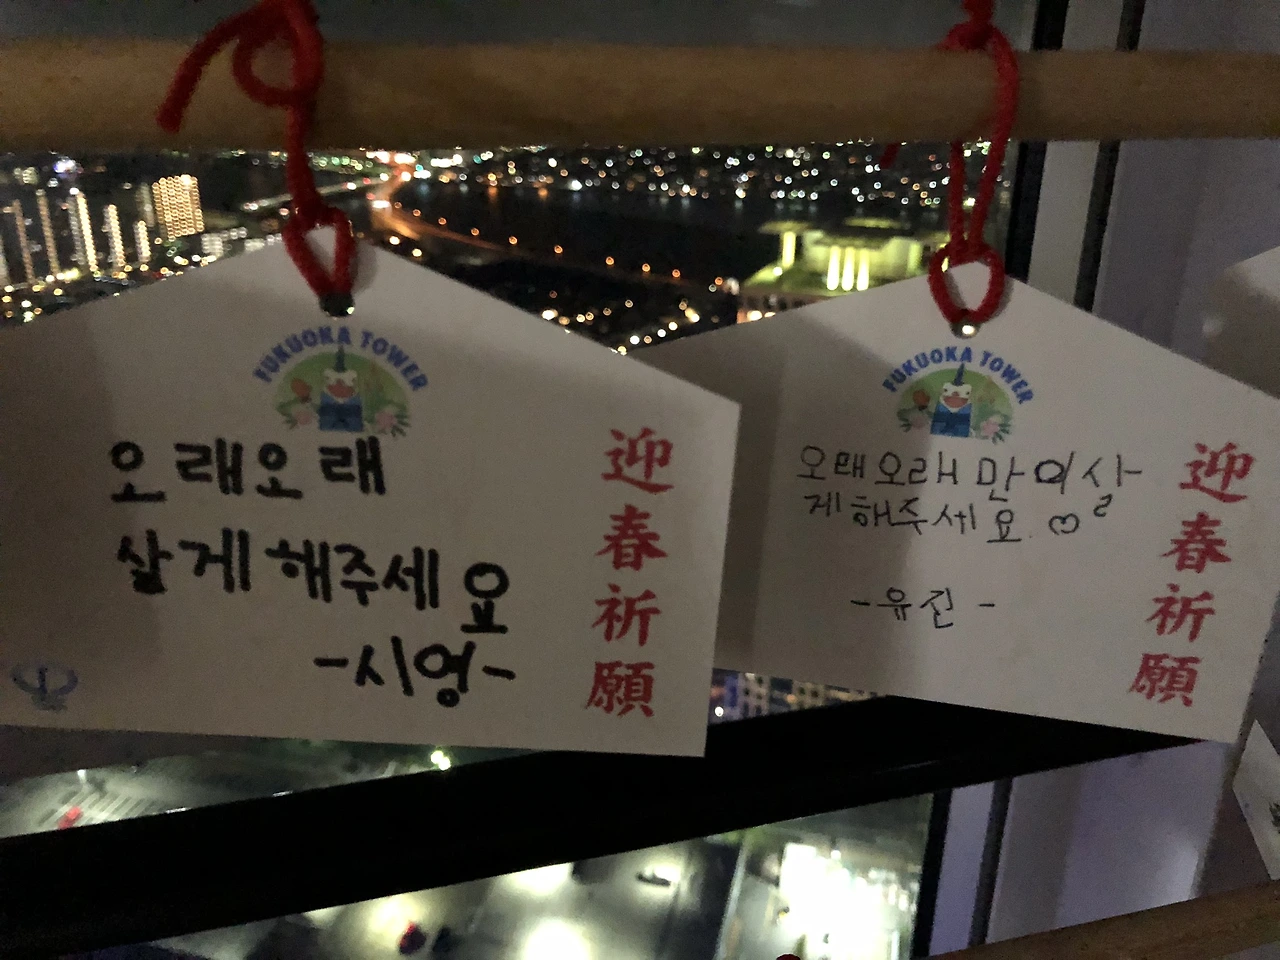 FUKUOKA TOWER
오래오래
살게 해주세요
-시영-
迎春祈願
FUKUOKA TOWER
오래오래만이살
게해주세요. ♡
-유진-
迎春祈願